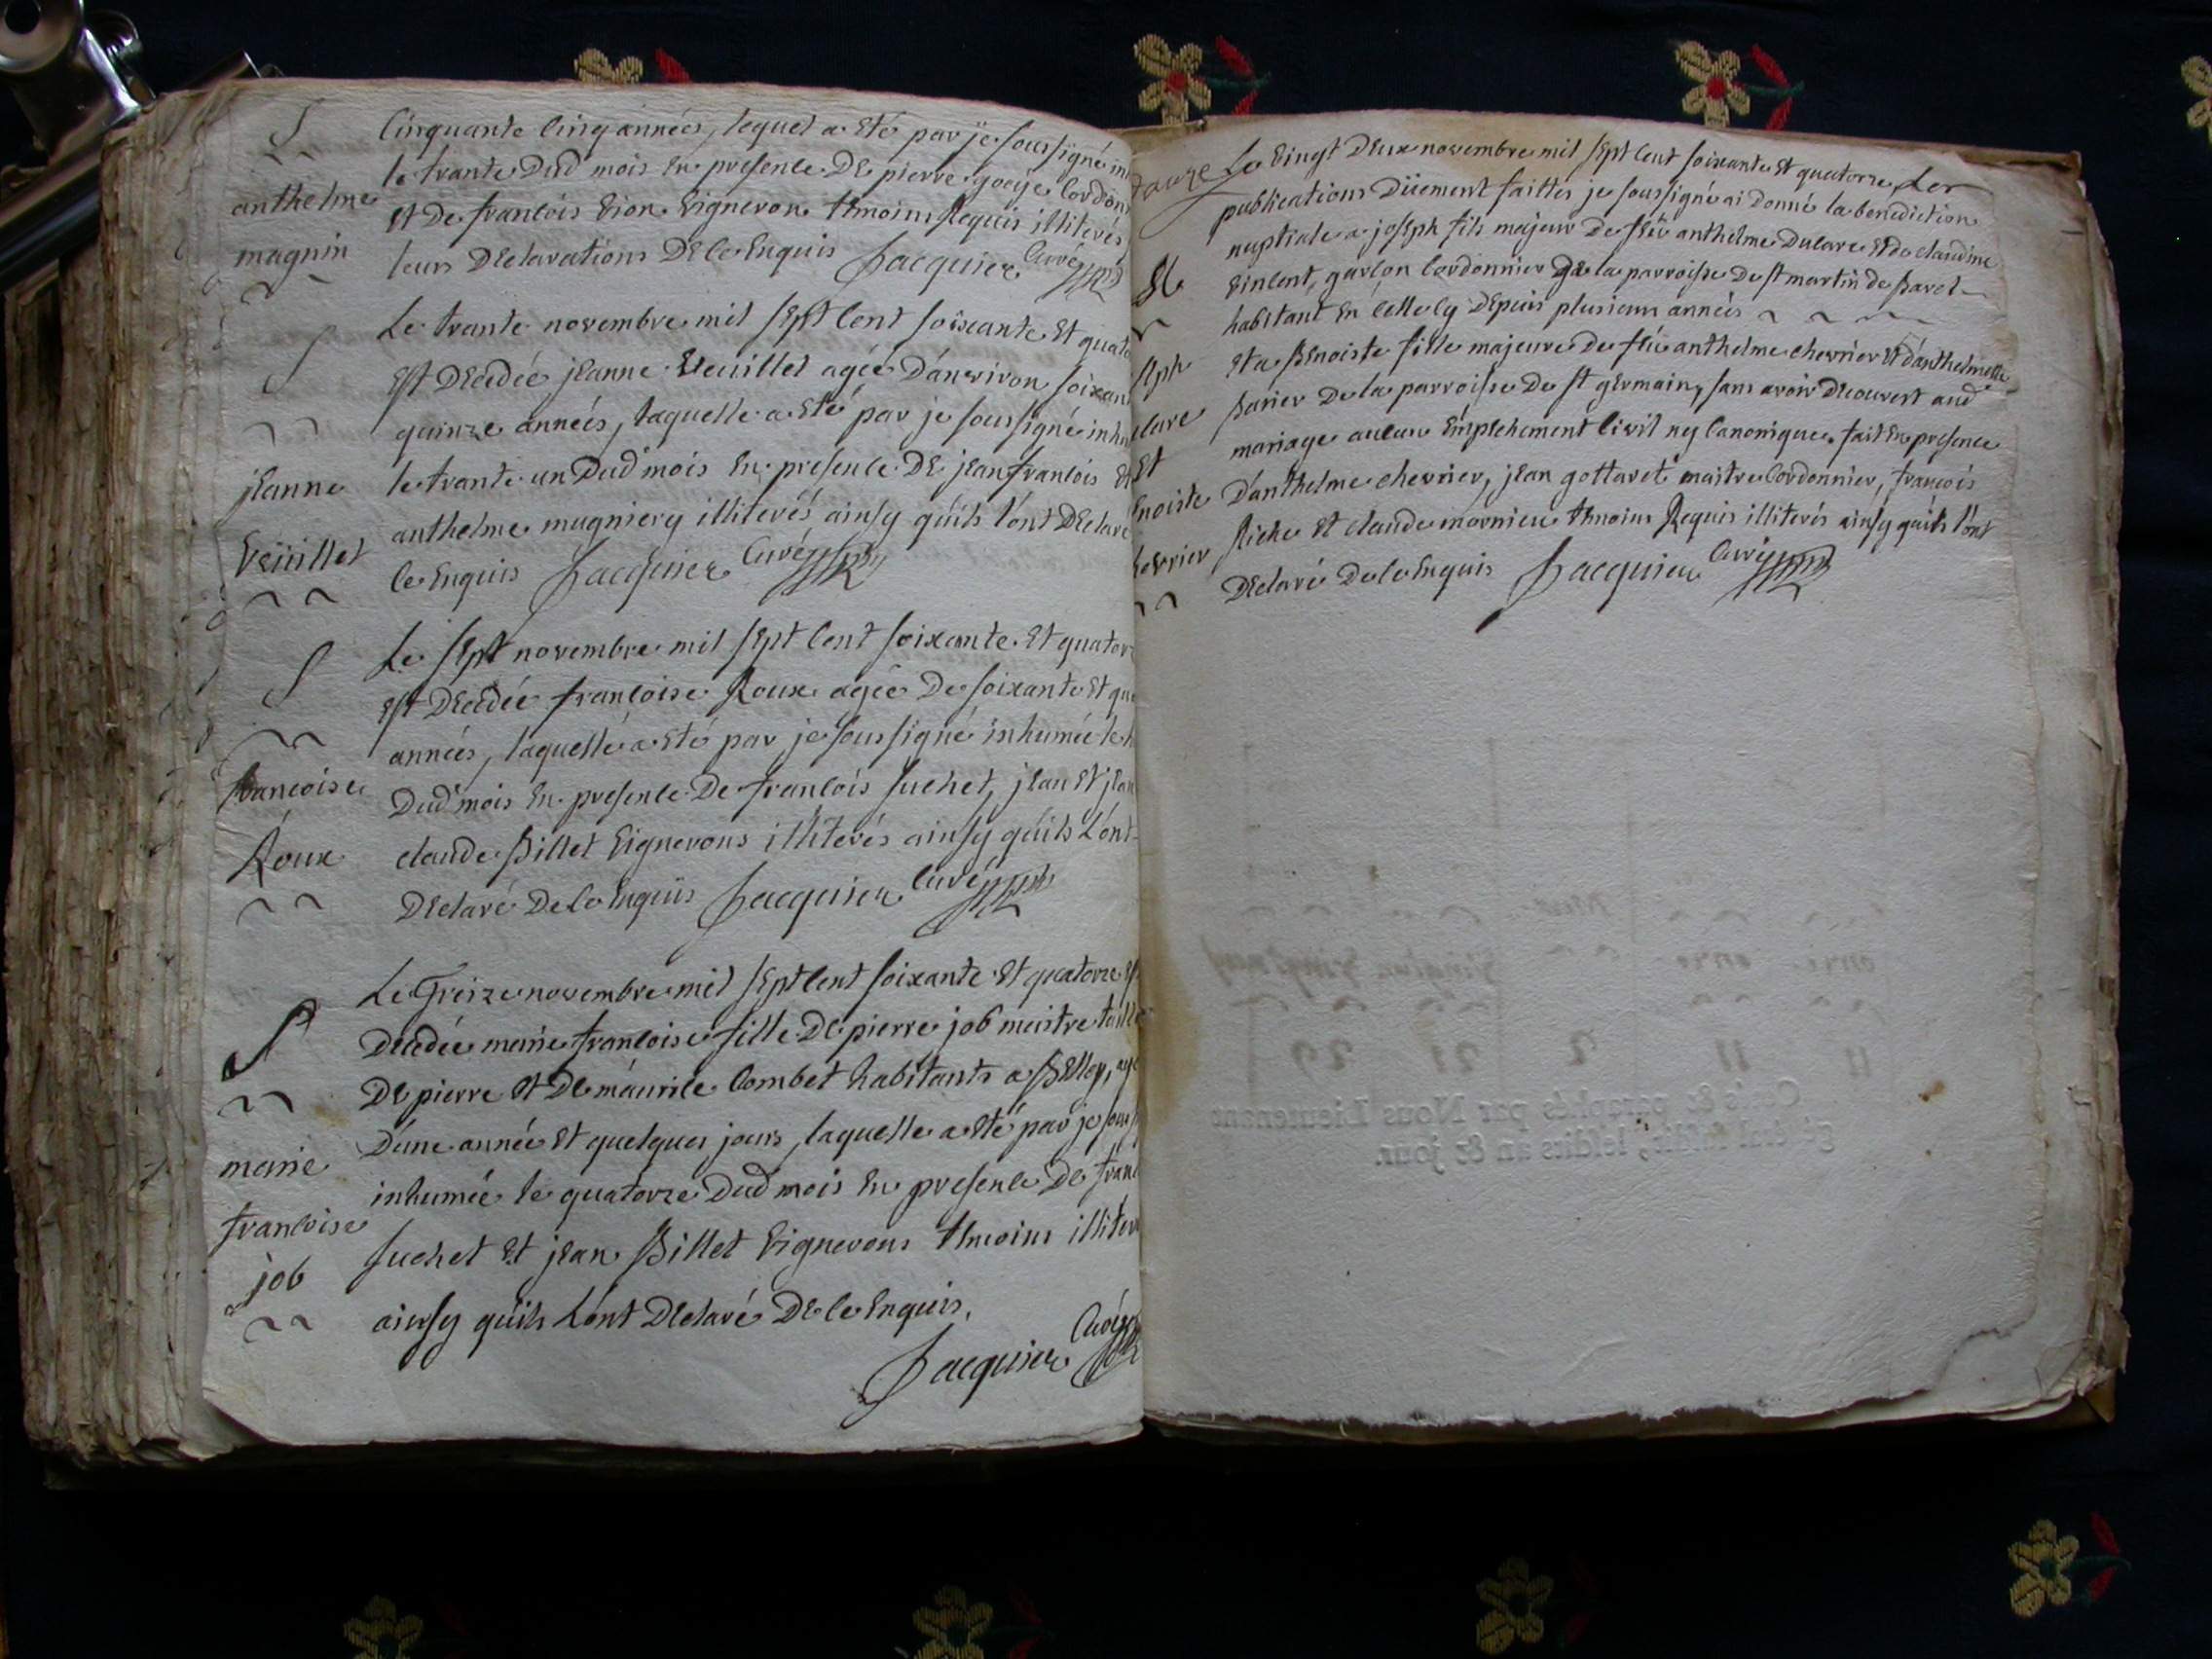 S
anthelme
magnin
Cinquante Cinq années, lequel a été par je soussigné
le trante Dud mois En presence DE pierre goeÿe Cordon
Et De francois Vion Vigneron temoins Requis illiterés
leurs Declarations DE ce Enquis Jacquier Curé
S
jEanne
Veüillet
Le trante novembre mil sept cent soixante Et quato
Est Decedée jEanne Veuillet agée D'anviron soixan
quinze années, laquelle a été par je soussigné inhu
le trante un Dud mois En presence DE jEan francois Et
anthelme mugniery illiterés ainsy qu'ils l'ont Declaré
ce Enquis Jacquier Curé
S
francoise
Roux
Le sept novembre mil sept cent soixante Et quator
Est Decedée francoise Roux agée De soixante Et qu
années, laquelle a été par je soussigné inhumée le h
Dud mois En presence De francois suchet, jEan Et jEan
claude Billet Vignerons illiterés ainsy qu'ils L'ont
DEclaré De ce Enquis Jacquier Curé
S
marie
francoise
job
Le Treize novembre mil sept cent soixante Et quatorze Es
Decedée marie francoise fille DE pierre job maitre taille
DE pierre Et DE maurice Combet habitants a BElley, agé
D'une année Et quelques jours, laquelle a été par je sous
inhumée le quatorze Dud mois En presence De franc
suchet Et jEan Billet Vignerons temoins illiter
ainsy qu'ils L'ont DEclaré DE ce Enquis.
Jacquier Curé
Le Vingt DEux novembre mil sept cent soixante Et quatorze, Les
publications Düement faittes je soussigné ai Donné la benediction
nuptiale a joseph fils majeur De feü anthelme Duclare Et De claudine
Vincent, garcon Cordonnier DE la parroisse De st martin de Bavel
habitant En cette Depuis plusieurs années
Et a BEnoiste fille majeure De feü anthelme chevrier Et d'anthelmette
Barier De la parroisse De st germain, sans avoir DEcouvert aud
mariage aucun Empechement Civil ny Canonique. fait En presence
D'anthelme chevrier, jEan gottaret maitre Cordonnier, francois
Riche Et claude mornieu temoins Requis illiterés ainsy qu'ils l'ont
DEclaré De ce Enquis Jacquier Curé
Et
seph
clare
Et
Enoiste
hevrier